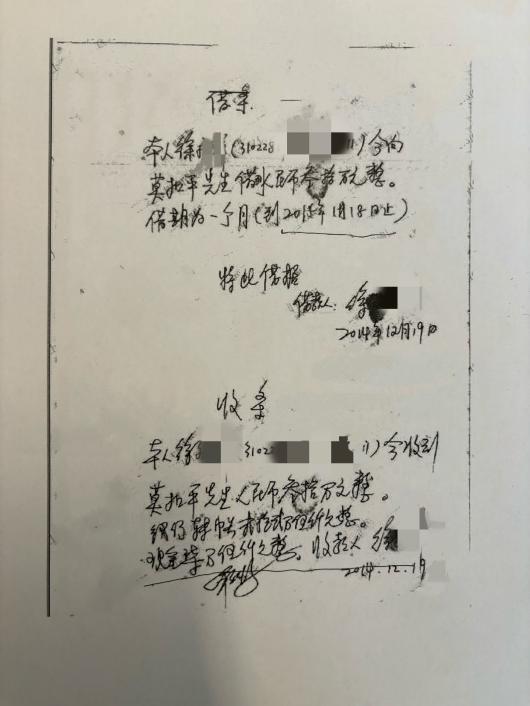 借条
本人徐(310228 1)今向
莫把平先生借人民币叁拾万元整。
借期为一个月(到2015年1月18日止)
特此借据
借款人:徐
2014年12月19日
收条
本人徐 31022 1)今收到
莫把平先生人民币叁拾万元整。
银行转帐 万 仟元整。
现金 万 仟元整。收款人 徐
2014.12.19